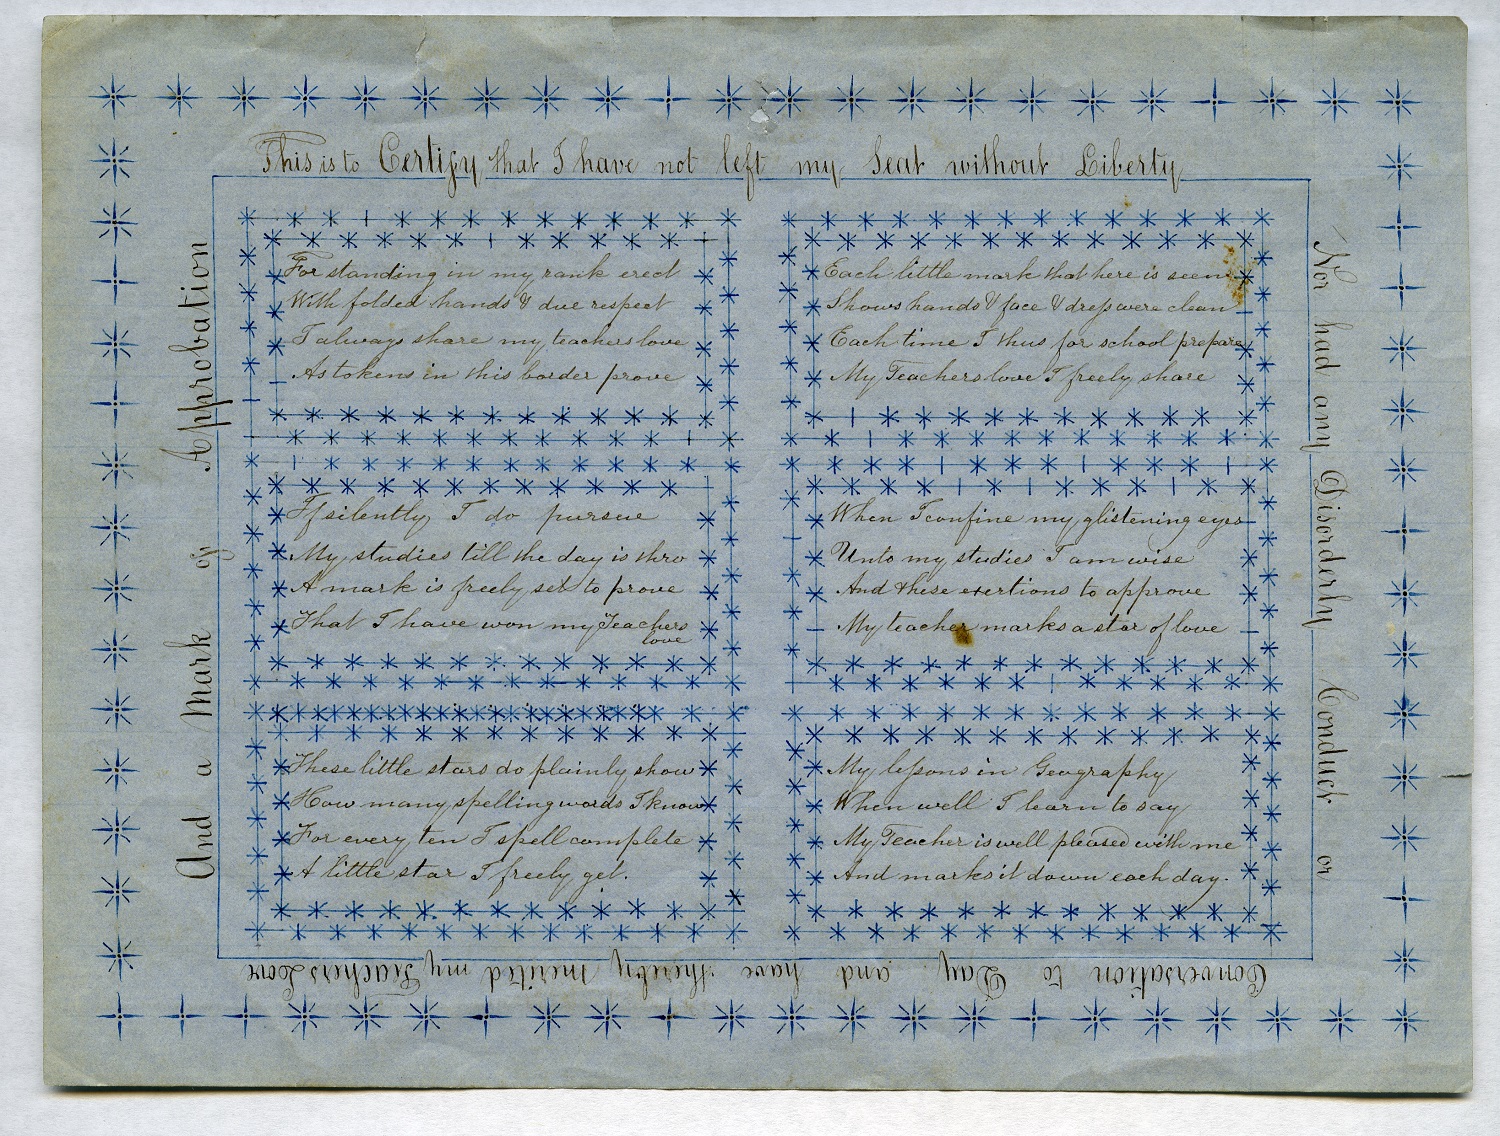 This is to Certify that I have not left my Seat without Liberty
Nor had any Disorderly Conduct or
Conversation to Day and have thereby merited my Teachers Love
And a Mark of Approbation
For standing in my rank erect
With folded hands & due respect
I always share my teachers love
As tokens in this border prove
Each little mark that here is seen
Shows hands & face & dress were clean
Each time I thus for school prepare
My Teachers love I freely share
If silently I do pursue
My studies till the day is thro
A mark is freely set to prove
That I have won my Teachers
love
When I confine my glistening eyes
Unto my studies I am wise
And these exertions to approve
My teacher marks a star of love
These little stars do plainly show
How many spelling words I know
For every ten I spell complete
A little star I freely get.
My lessons in Geography
When well I learn to say
My Teacher is well pleased with me
And marks it down each day.